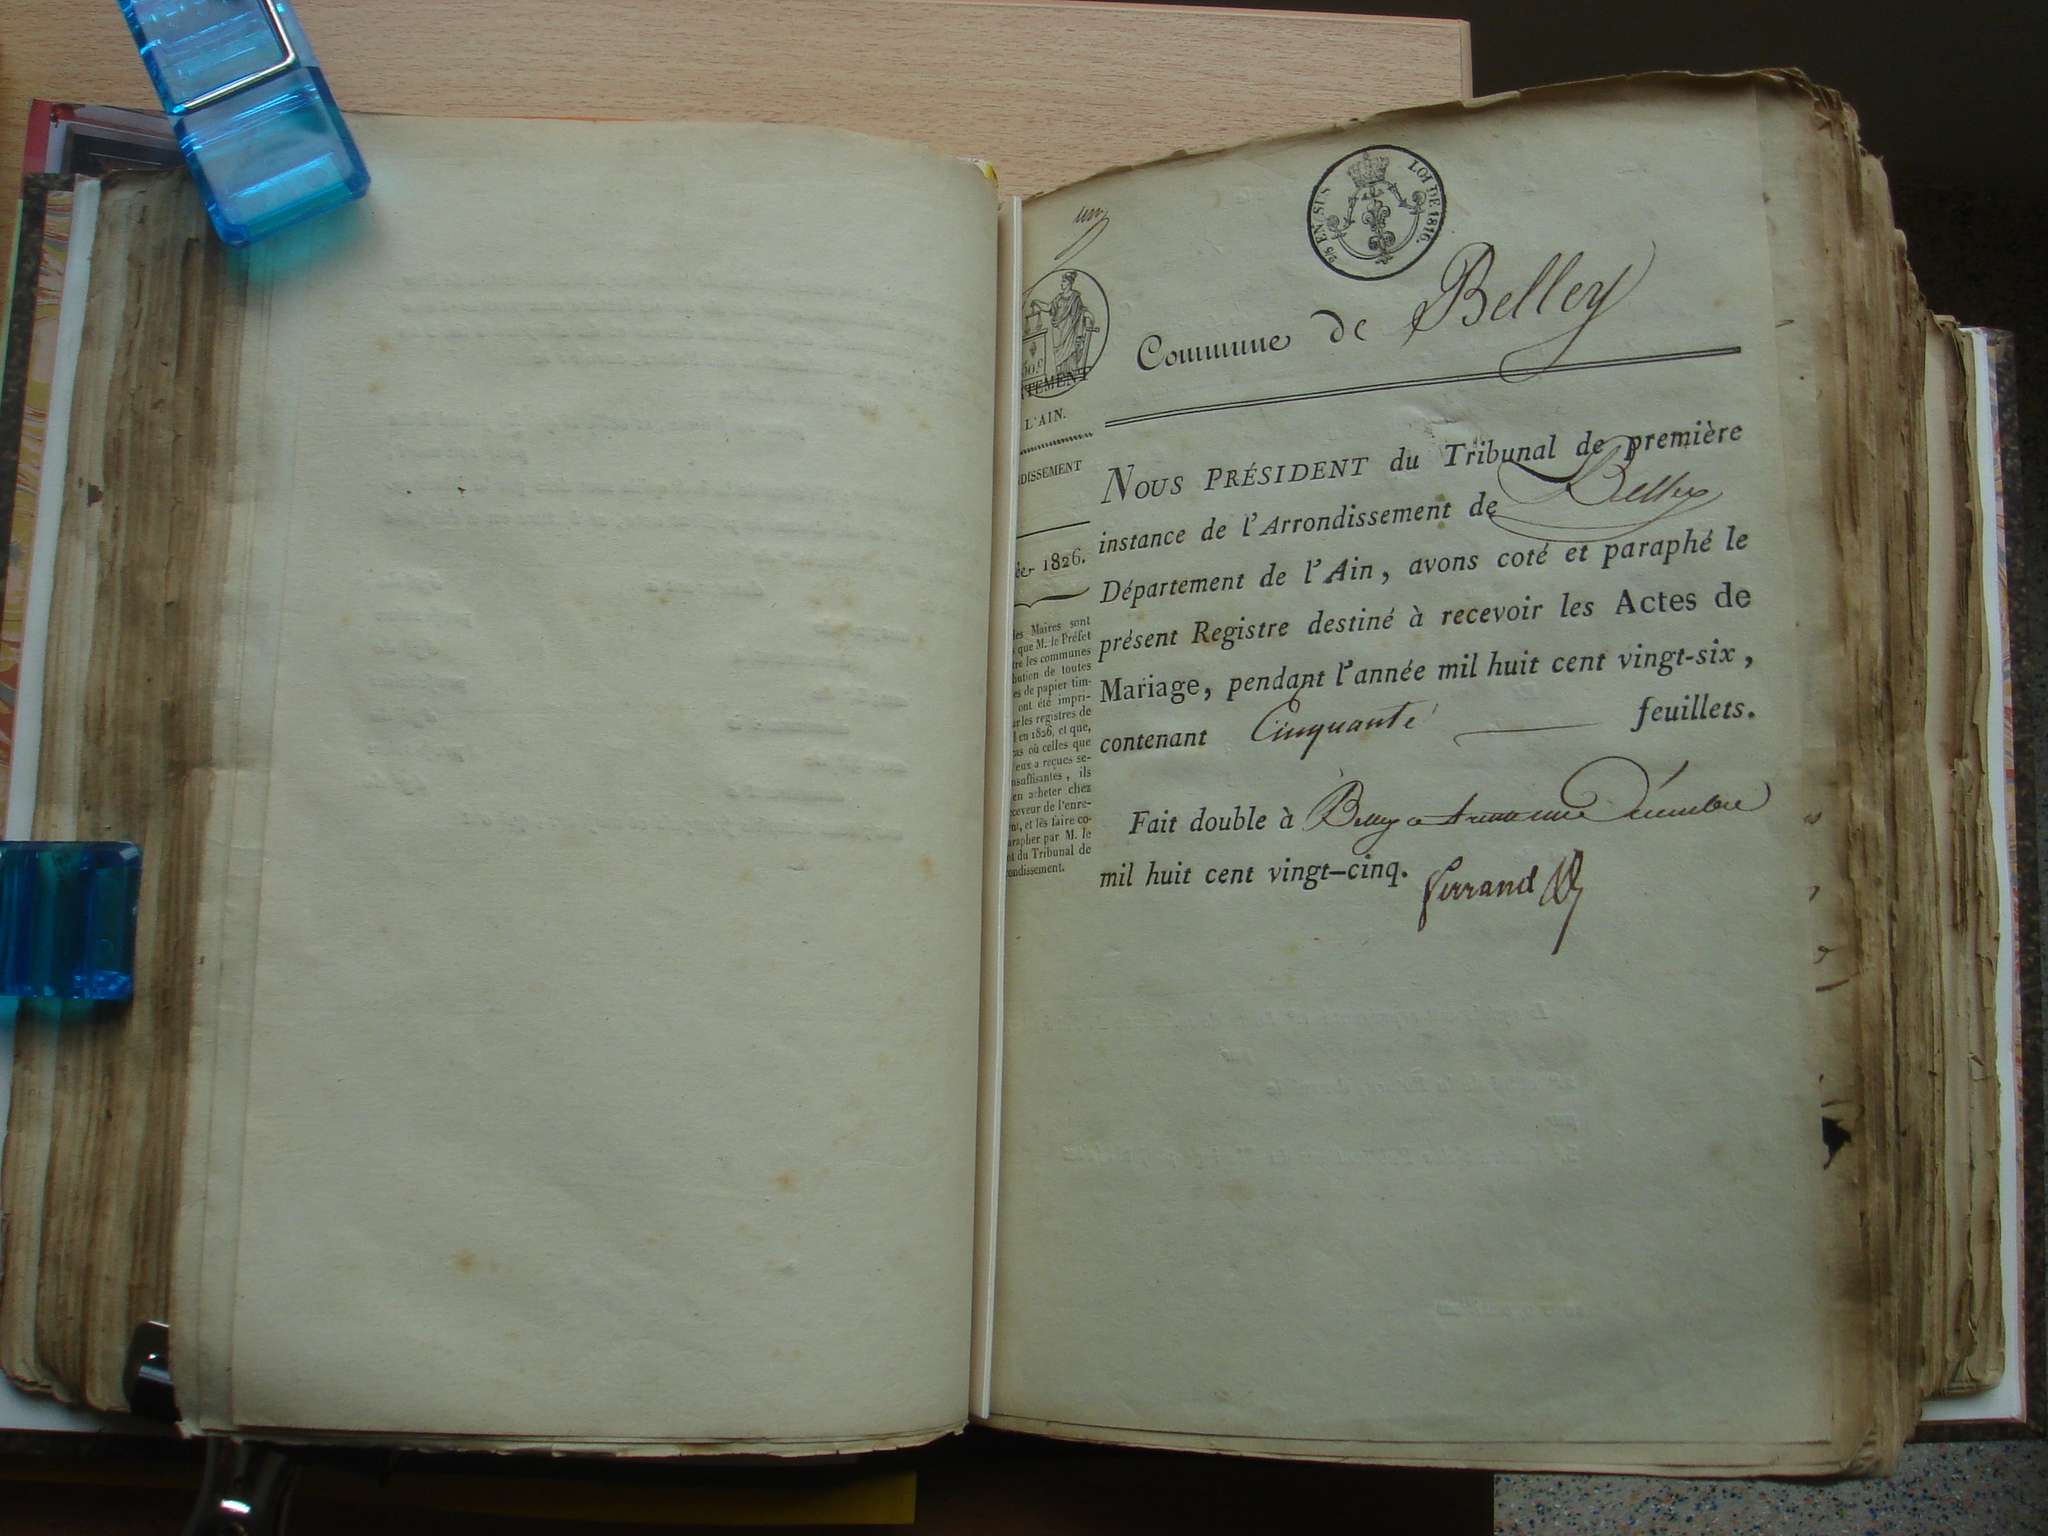 un
25 EN SUS
LOI DE 1816.
Commune de Belley
50 C
TEMENT
L'AIN.
DISSEMENT
ée 1826.
les Maires sont
que M. le Préfet
tre les communes
bution de toutes
es de papier tim-
ont été impri-
ur les registres de
l en 1826, et que,
cas où celles que
eux a reçues se-
nsuffisantes, ils
en acheter chez
ceveur de l'enre-
nt, et les faire co-
arapher par M. le
nt du Tribunal de
ondissement.
NOUS PRÉSIDENT du Tribunal de première
instance de l'Arrondissement de Belley
Département de l'Ain, avons coté et paraphé le
présent Registre destiné à recevoir les Actes de
Mariage, pendant l'année mil huit cent vingt-six,
contenant Cinquante feuillets.
Fait double à Belley le trente une Décembre
mil huit cent vingt-cinq. Ferrand